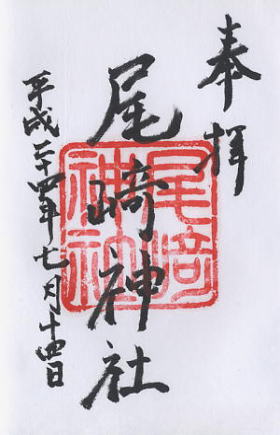 奉拝
尾崎神社
尾﨑神社
平成二十四年七月十四日